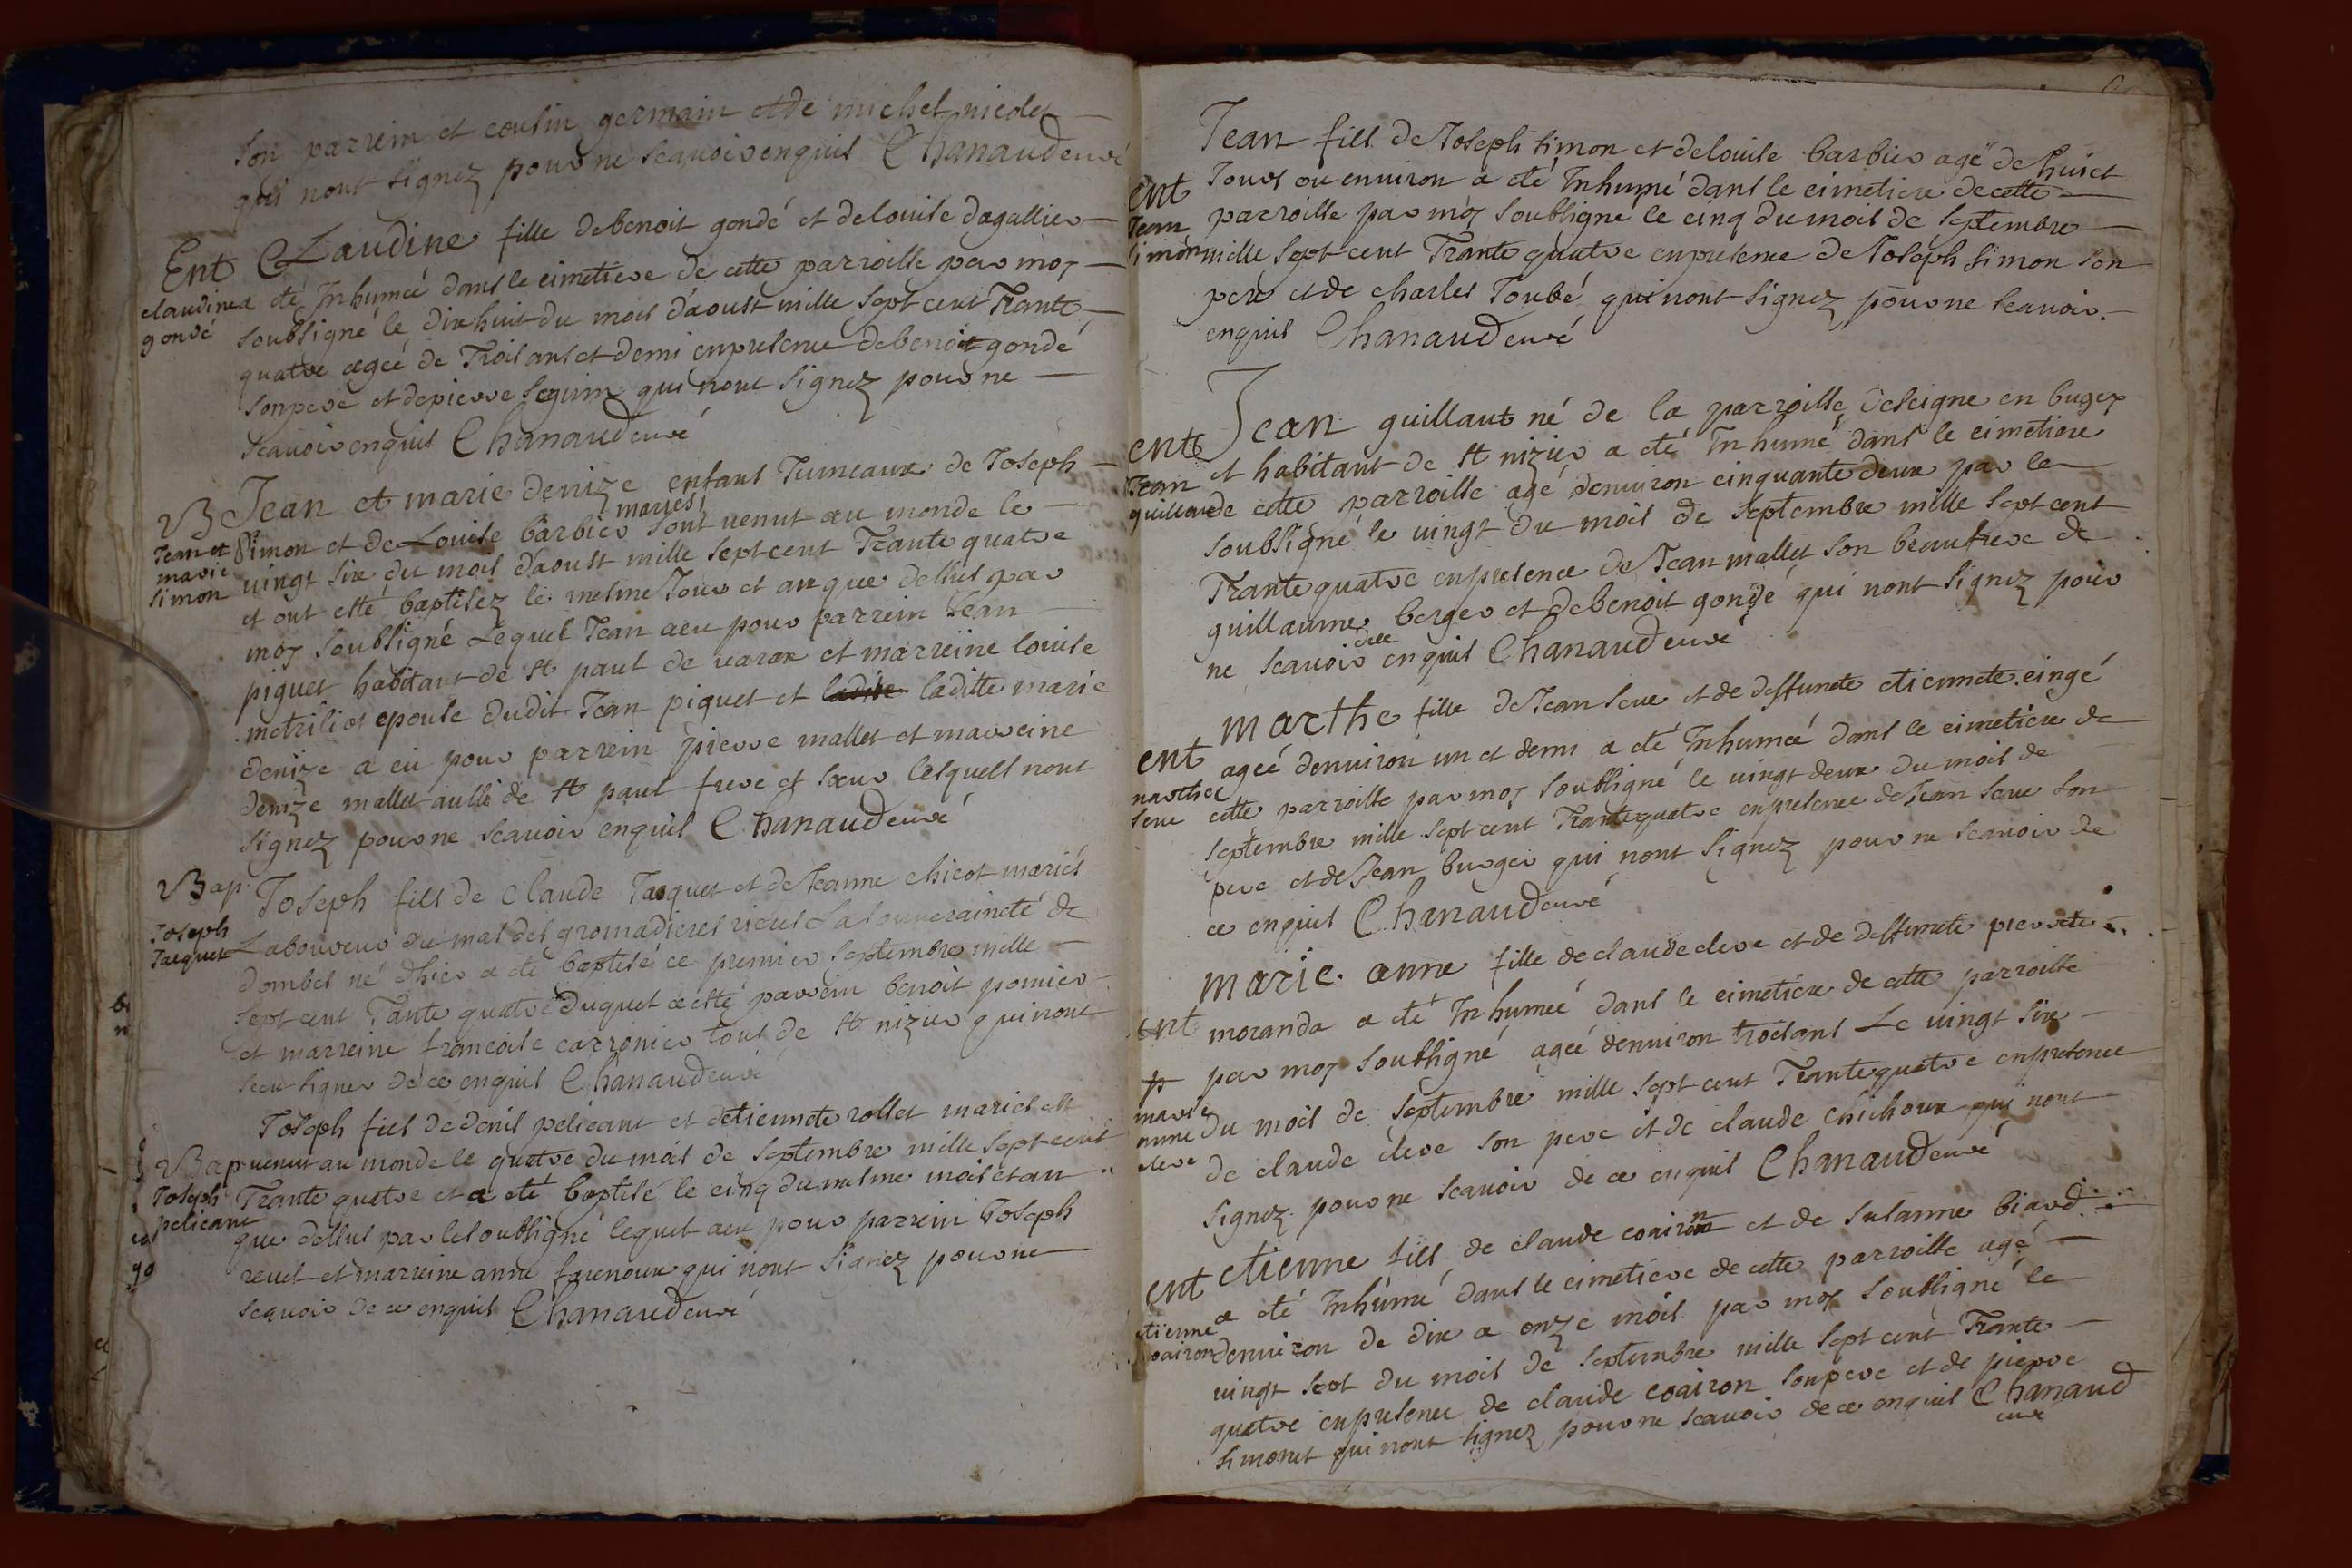 son parrein et cousin germain et de michel nicolet
qui nont signez pour ne scavoir enquis Chanaud curé
Ent Claudine fille de benoit gondé et de louise dagallier
claudine gondé
a eté Inhumeé dans le cimetiere de cette parroisse par moy
soubsigné le dix huit du mois daoust mille sept cent Trante
quatre ageé de Trois ans et demi en presence de benoit gondé
son pere et de pierre seguin qui nont signez pour ne
scavoir enquis Chanaud curé
B Jean et marie denize enfans Jumeaux de Joseph
Jean et marie simon
mariés
Simon et de Louise barbier sont venut au monde le
vingt six du mois daoust mille sept cent Trante quatre
et ont esté baptisez le mesme Jour et an que dessus par
moy soubsigné Lequel Jean a eu pour parrein Jean
piquet habitant de st paul de varax et marreine louise
metriliot epouse dudit Jean piquet et ladite laditte marie
denize a eu pour parrein pierre mallet et marreine
denize mallet aussi de st paul frere et sœur lesquels nont
signez pour ne scavoir enquis Chanaud curé
Bap. Joseph fils de Claude Jacquet et de Jeanne chicot mariés
Joseph Jacquet
Laboureur du mas des gromadieres riere La souveraineté de
dombes né dhier a eté baptisé ce premier septembre mille
sept cent Tante quatre Duquel a esté parrein benoit pomier
et marreine francoise carronier tout de st nizier qui nont
sceu signer de ce enquis Chanaud curé
Joseph fils de denis pelicant et detiennete rollet mariés est
Bap venut au monde le quatre du mois de septembre mille sept cent
Joseph pelicant
Trante quatre et a eté baptisé le cinq du mesme mois et an
que dessus par le soubsigné lequel a eu pour parrein Joseph
revel et marreine anne favenoux qui nont signez pour ne
scavoir de ce enquis Chanaud curé
Jean fils de Joseph simon et de louise barbier agé de huict
ent Jean simon
Jours ou environ a eté Inhumé dans le cimetiere de cette
parroisse par moy soubsigné le cinq du mois de septembre
mille sept cent Trante quatre en presence de Joseph simon son
pere et de charles Joubé qui nont signez pour ne scavoir
enquis Chanaud curé
Jean guillaut né de la parroisse de seigne en bugey
ent Jean guillaut
et habitant de st nizier a eté Inhumé dans le cimetiere
de cette parroisse agé denviron cinquante deux par le
soubsigné le vingt du mois de septembre mille sept cent
Trante quatre en presence de Jean mallet son beaufrere de
guillaume berger et de benoit gondé qui nont signez pour
ne scavoir de ce enquis Chanaud curé
marthe fille de Jean seve et de deffuncte etiennete cingé
ent marthe seve
ageé denviron un et demi a eté Inhumeé dans le cimetiere de
cette parroisse par moy soubsigné le vingt deux du mois de
septembre mille sept cent Trante quatre en presence de Jean seve son
pere et de Jean burger qui nont signez pour ne scavoir de
ce enquis Chanaud curé
marie anne fille de claude cleve et de deffuncte pierrete
ent moranda a eté Inhumeé dans le cimetiere de cette parroisse
par moy soubsigné ageé denviron trois ans Le vingt six
marie anne cleve
du mois de septembre mille sept cent Trante quatre en presence
de claude cleve son pere et de claude chichoux qui nont
signez pour ne scavoir de ce enquis Chanaud curé
ent etienne fils de claude coairon et de susanne biard
etienne coairon
a eté Inhumé dans le cimetiere de cette parroisse agé
denviron de dix a onze mois par moy soubsigné le
vingt sept du mois de septembre mille sept cent Trante
quatre en presence de claude coairon son pere et de pierre
simonet qui nont signez pour ne scavoir de ce enquis Chanaud
curé